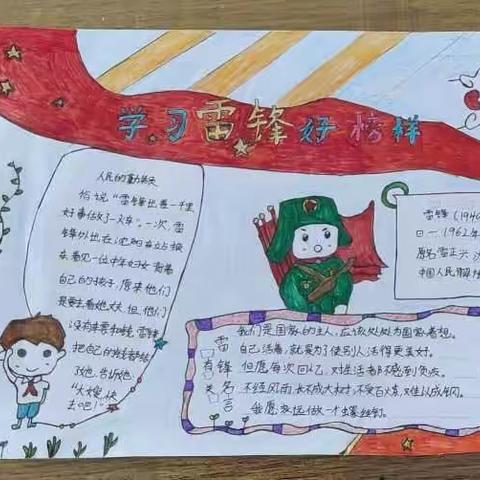 学习雷锋好榜样
人民的勤务员
俗说“雷锋出差一千里
好事做了一火车”。一次,雷
锋外出在沈阳车站换
车,看见一位中年妇女背着
自己的孩子,原来他们
是要去看她丈夫,但他们
没有车票和钱,雷锋
把自己的钱都给
了她,告诉她:
“大嫂,快
去吧!”
雷锋(1940
日—1962年
原名雷正兴
中国人民解放
雷锋名言
我们是国家的主人,应该处处为国家着想。
自己活着,就是为了使别人活得更美好。
但愿每次回忆,对生活都不感到负疚。
不经风雨,长不成大树,不受百炼,难以成钢。
我愿永远做一个螺丝钉。